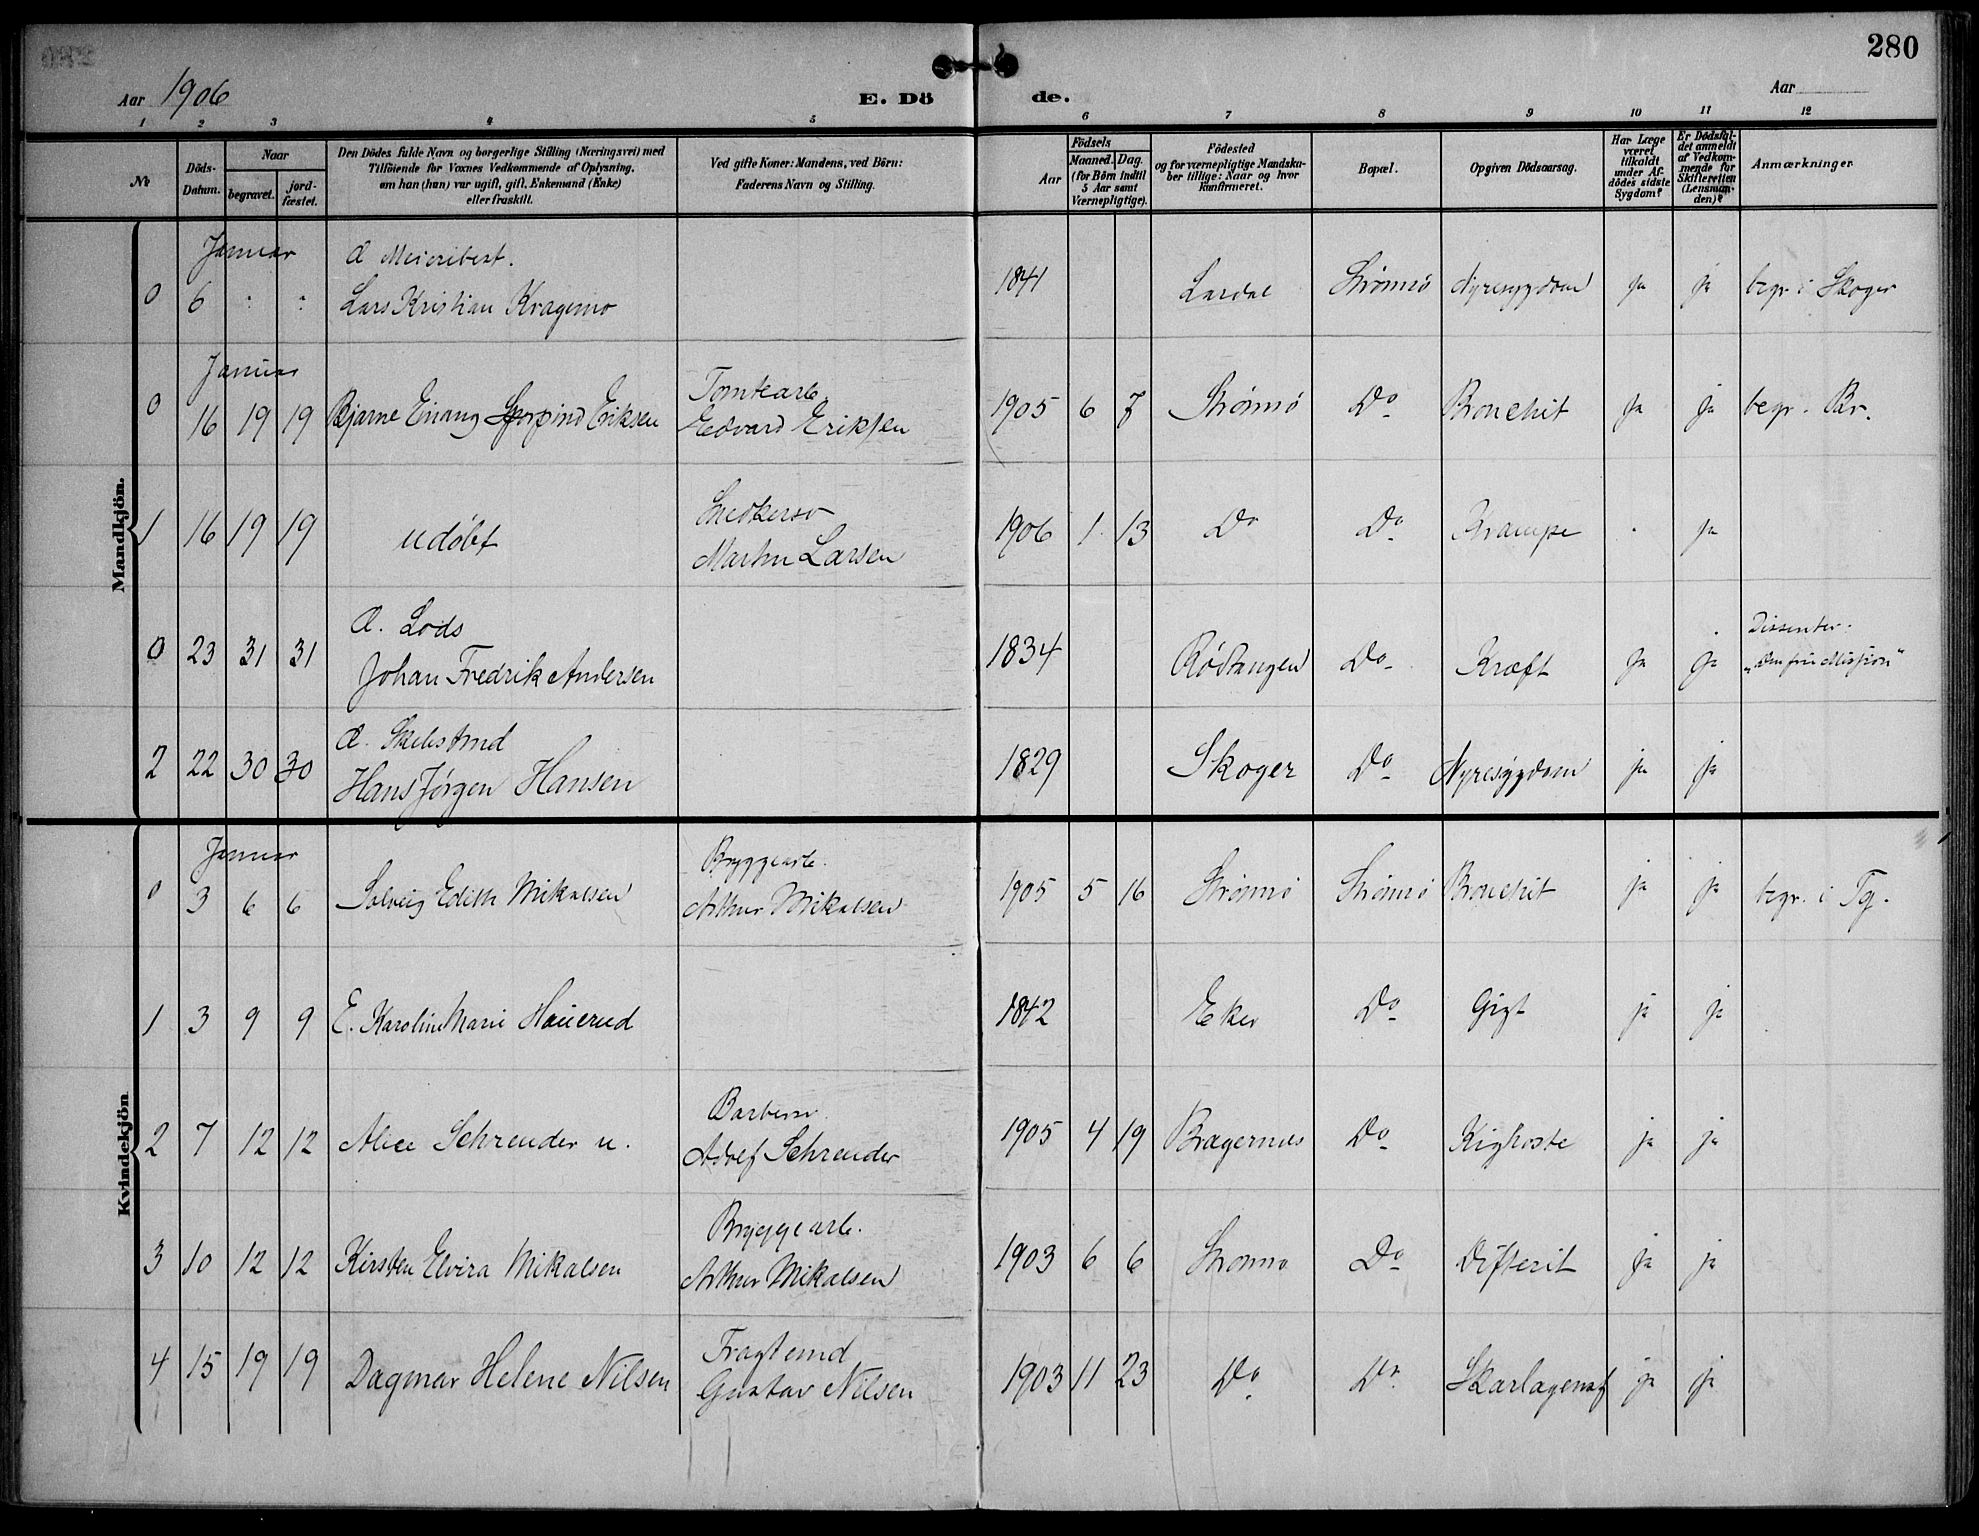 280
Aar 1906
E. Dö de.
Aar
1 2 3 4 5 6 7 8 9 10 11 12
No
Döds-Datum.
Naar
begravet.
jord-fæstet.
Den Dödes fulde Navn og borgerlige Stilling (Næringsvei) med
Tilföiende for Voxnes Vedkommende af Oplysning,
om han (hun) var ugift, gift, Enkemand (Enke)
eller fraskilt.
Ved gifte Koner: Mandens, ved Börn:
Faderens Navn og Stilling.
Födsels
Aar
Maaned.
Dag.
(for Börn indtil
5 Aar samt
Værnepligtige).
Födested
og for værnepligtige Mandska-
ber tillige: Naar og hvor
konfirmeret.
Bopæl.
Opgiven Dödsaarsag.
Har Læge
været
tilkaldt
under Af-
dödes sidste
Sygdom?
Er Dödsfal-
det anmeldt
af Vedkom-
mende for
Skifteretten
(Lensman-
den)?
Anmærkninger
Mandkjön.
Januar Æ Meieribest.
0 6 " " Lars Kristian Kragemo 1841 Lardal Strømsø Nyresygdom ja ja begr. i Skoger
Januar Tomtearb.
0 16 19 19 Bjarne Einang Eriksen Edvard Eriksen 1905 6 7 Strømsø Do Bronchit ja ja begr. Br.
Snedkersv
1 16 19 19 udøbt Martin Larsen 1906 1 13 Do Do Krampe " ja
Æ. Lods Dissenter.
0 23 31 31 Johan Fredrik Andersen 1834 Rødtangen Do Kræft ja ja "Den frie Mission"
Æ.
2 22 30 30 Hans Jørgen Hansen 1829 Skoger Do Nyresygdom ja ja
Kvindekjön
Januar Bryggearb.
0 3 6 6 Solveig Edith Mikalsen Arthur Mikalsen 1905 5 16 Strømsø Strømsø Bronchit ja ja begr. i Tg.
1 3 9 9 E. Karoline Marie Hauerud 1842 Eker Do Gigt ja ja
Barbersv.
2 7 12 12 Alice Schreuder u. Adolf Schreuder 1905 4 19 Bragernes Do Kighoste ja ja
Bryggearb.
3 10 12 12 Kirsten Elvira Mikalsen Arthur Mikalsen 1903 6 6 Strømsø Do Difterit ja ja
Fragtemd
4 15 19 19 Dagmar Helene Nilsen Gustav Nilsen 1903 11 23 Do Do Skarlagensf ja ja